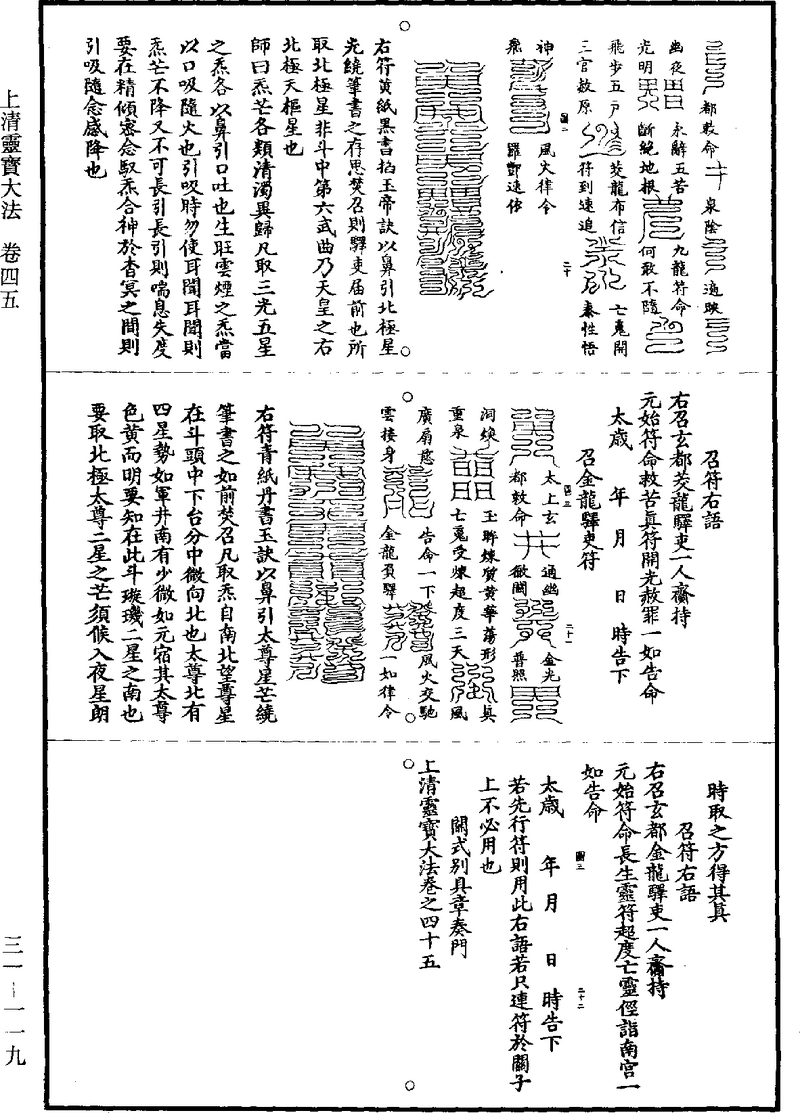 上清靈寶大法 卷四五
三一-一一九
都敕命 泉陰 適映
幽夜 永辭五苦 九龍符命
光明 斷絕地根 何敢不隨
飛步五戶 茭龍布信 亡魂開
三官赦原 符到速追 慕性悟
圖二
二十
神 風火律令
無 羅酆速依
右符黃紙黑書掐玉帝訣以鼻引北極星
光繞筆書之存思焚召則驛吏届前也所
取北極星非斗中第六武曲乃天皇之右
北極天樞星也
師曰炁芒各類清濁異歸凡取三光五星
之炁各以鼻引口吐也生旺雲煙之炁當
以口吸隨火也引吸時勿使耳聞耳聞則
炁芒不降又不可長引長引則喘息失度
要在精傾密念馭炁合神於杳冥之間則
引吸隨念感降也
召符右語
右召玄都茭龍驛吏一人齎持
元始符命救苦真符開光赦罪一如告命
太歲 年 月 日 時告下
召金龍驛吏符
圖三
二十一
太上玄 通幽 金光
都敕命 徹開 普照
洞煥 玉眸煉質黃華蕩形
重泉 亡魂受煉超度三天 真風
廣扇慈 告命一下 風火交馳
雲接身 金龍負驛 一如律令
右符青紙丹書玉訣以鼻引太尊星芒繞
筆書之如前焚召凡取炁自南北望尊星
在斗頭中下台分中微向北也太尊北有
四星勢如軍井南有少微如元宿其太尊
色黃而明要知在此斗璇璣二星之南也
要取北極太尊二星之芒須候入夜星朗
時取之方得其真
召符右語
右召玄都金龍驛吏一人齎持
元始符命長生靈符超度亡靈徑詣南宮一
如告命
圖三
二十二
太歲 年 月 日 時告下
若先行符則用此右語若只連符於關子
上不必用也
關式別具章奏門
上清靈寶大法卷之四十五